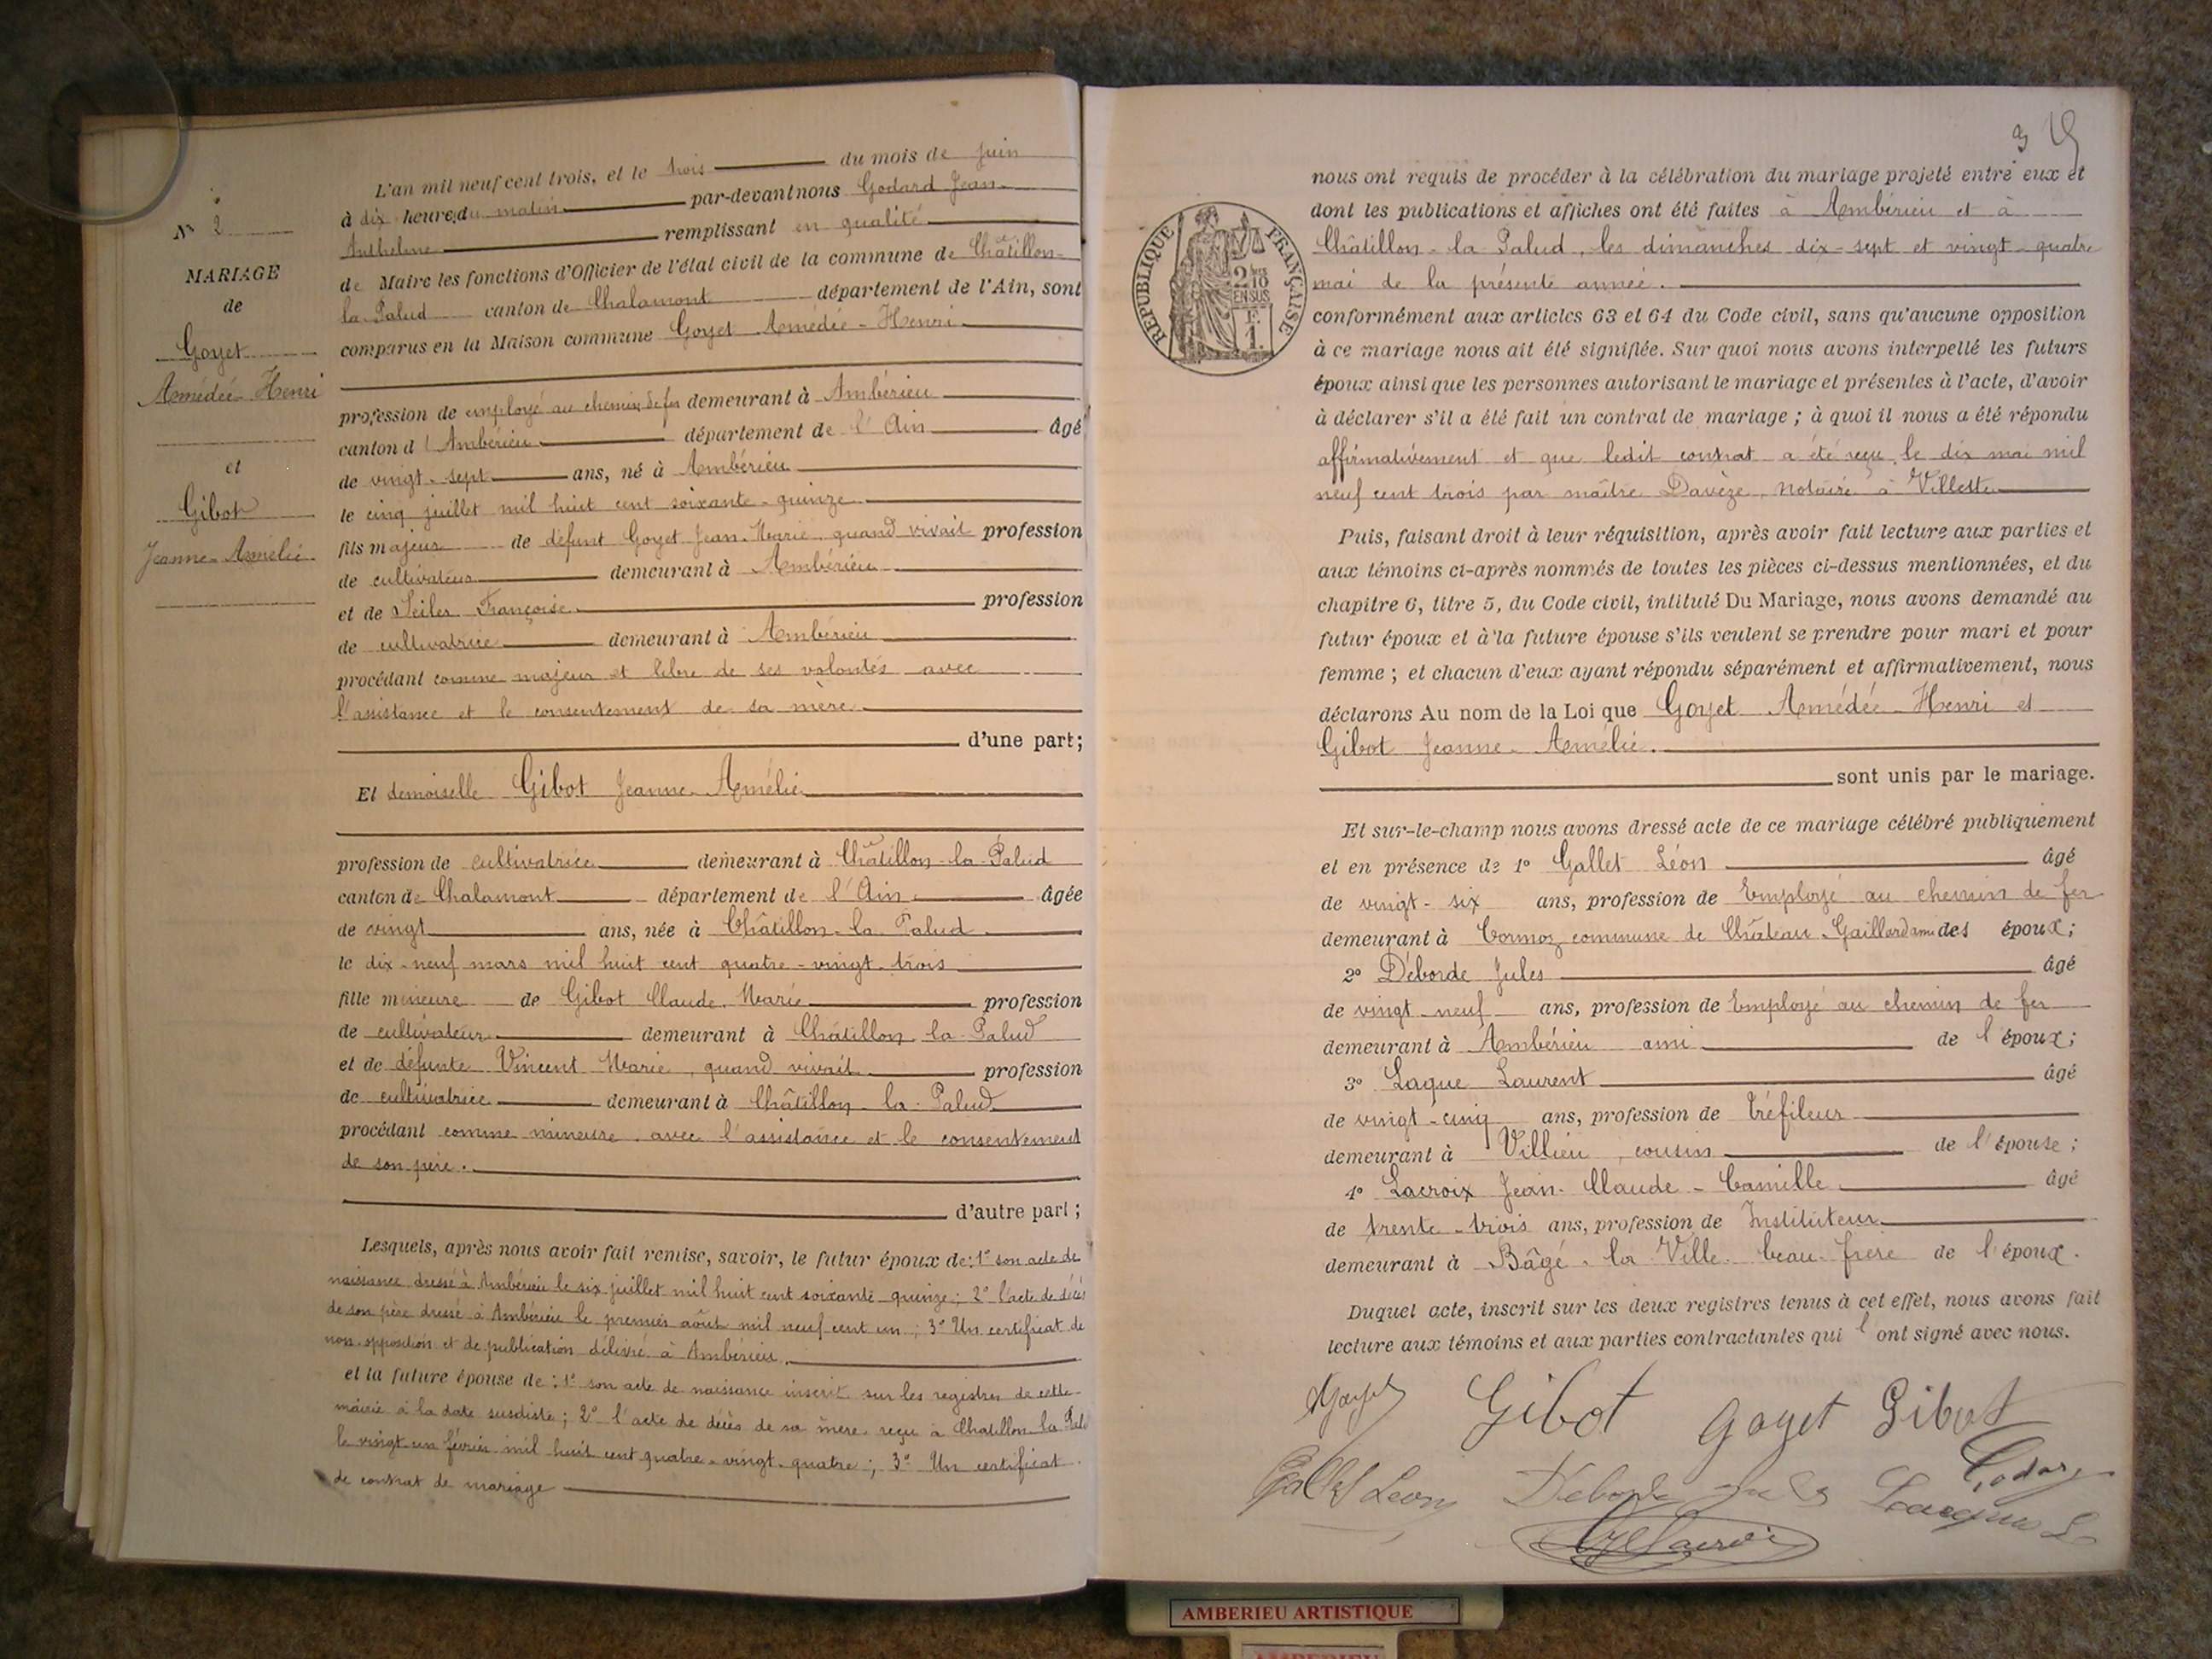 N° 2
MARIAGE
de
Goyet
Amédée-Henri
et
Gibot
Jeanne-Amélie
L'an mil neuf cent trois, et le trois du mois de juin
à dix heures du matin par-devant nous Godard Jean-
Anthelme remplissant en qualité
de Maire les fonctions d'Officier de l'état civil de la commune de Châtillon-
la-Palud canton de Chalamont département de l'Ain, sont
comparus en la Maison commune Goyet Amédée-Henri
profession de employé au chemin de fer demeurant à Ambérieu
canton d'Ambérieu département de l'Ain âgé
de vingt-sept ans, né à Ambérieu
le cinq juillet mil huit cent soixante-quinze
fils majeur de défunt Goyet Jean-Marie quand vivait profession
de cultivateur demeurant à Ambérieu
et de Seiles Françoise profession
de cultivatrice demeurant à Ambérieu
procédant comme majeur et libre de ses volontés avec
l'assistance et le consentement de sa mère
d'une part;
Et demoiselle Gibot Jeanne-Amélie
profession de cultivatrice demeurant à Châtillon-la-Palud
canton de Chalamont département de l'Ain âgée
de vingt ans, née à Châtillon-la-Palud
le dix-neuf mars mil huit cent quatre-vingt-trois
fille mineure de Gibot Claude-Marie profession
de cultivateur demeurant à Châtillon-la-Palud
et de défunte Vincent Marie, quand vivait profession
de cultivatrice demeurant à Châtillon-la-Palud
procédant comme mineure avec l'assistance et le consentement
de son père.
d'autre part;
Lesquels, après nous avoir fait remise, savoir, le futur époux de: 1° son acte de
naissance dressé à Ambérieu le six juillet mil huit cent soixante-quinze; 2° l'acte de décès
de son père dressé à Ambérieu le premier août mil neuf cent un; 3° Un certificat de
non-opposition et de publication délivré à Ambérieu.
et la future épouse de: 1° son acte de naissance inscrit sur les registres de cette
mairie à la date susdite; 2° l'acte de décès de sa mère reçu à Chatillon-la-Palud
le vingt-un février mil huit cent quatre-vingt-quatre; 3° Un certificat
de contrat de mariage
3
nous ont requis de procéder à la célébration du mariage projeté entre eux et
dont les publications et affiches ont été faites à Ambérieu et à
Châtillon-la-Palud, les dimanches dix-sept et vingt-quatre
mai de la présente année.
RÉPUBLIQUE FRANÇAISE
2/10 EN SUS
F. 1.
conformément aux articles 63 et 64 du Code civil, sans qu'aucune opposition
à ce mariage nous ait été signifiée. Sur quoi nous avons interpellé les futurs
époux ainsi que les personnes autorisant le mariage et présentes à l'acte, d'avoir
à déclarer s'il a été fait un contrat de mariage; à quoi il nous a été répondu
affirmativement et que ledit contrat a été reçu le dix mai mil
neuf cent trois par maître Davèze, notaire à Villette
Puis, faisant droit à leur réquisition, après avoir fait lecture aux parties et
aux témoins ci-après nommés de toutes les pièces ci-dessus mentionnées, et du
chapitre 6, titre 5, du Code civil, intitulé Du Mariage, nous avons demandé au
futur époux et à la future épouse s'ils veulent se prendre pour mari et pour
femme; et chacun d'eux ayant répondu séparément et affirmativement, nous
déclarons Au nom de la Loi que Goyet Amédée-Henri et
Gibot Jeanne-Amélie.
sont unis par le mariage.
Et sur-le-champ nous avons dressé acte de ce mariage célébré publiquement
et en présence de 1° Gallet Léon âgé
de vingt-six ans, profession de Employé au chemin de fer
demeurant à Cormoz commune de Château-Gaillard ami des époux;
2° Déborde Jules âgé
de vingt-neuf ans, profession de Employé au chemin de fer
demeurant à Ambérieu ami de l'époux;
3° Laque Laurent âgé
de vingt-cinq ans, profession de tréfileur
demeurant à Villieu, cousin de l'épouse;
4° Lacroix Jean-Claude-Camille âgé
de trente-trois ans, profession de Instituteur
demeurant à Bâgé-la-Ville beau-frère de l'époux.
Duquel acte, inscrit sur les deux registres tenus à cet effet, nous avons fait
lecture aux témoins et aux parties contractantes qui l'ont signé avec nous.
Gibot Goyet Gibot
Gallet Léon Godard
Lacroix
AMBERIEU ARTISTIQUE
AMBERIEU